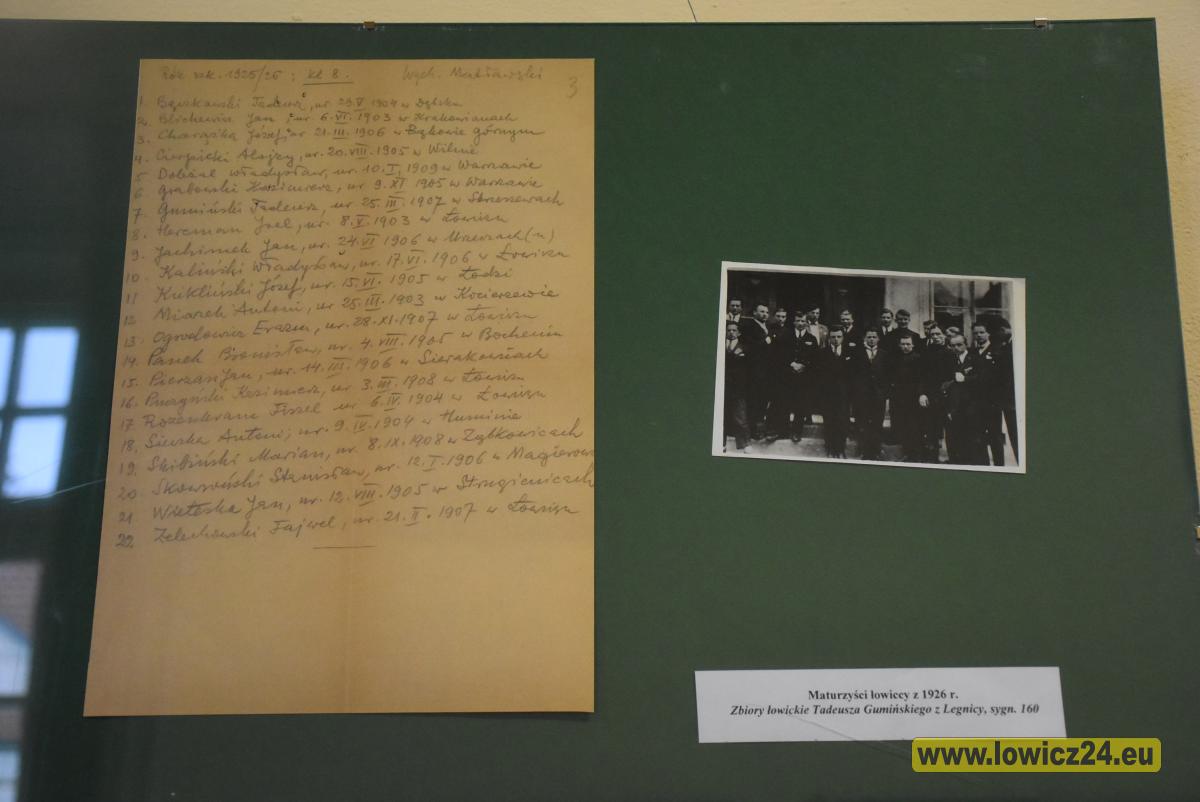 Rok szk. 1925/26 : kl 8. Wych.
3
1. Tadeusz, ur. 29.V 1904 w
2. Blichewicz Jan, ur. 6.VI. 1903 w Krakowianach
3. Józef, ur. 21.III. 1906 w Bąkowie górnym
4. Cierpicki Alojzy, ur. 20.VIII. 1905 w Wilnie
5. Władysław, ur. 10.I. 1909 w Warszawie
6. Grabowski Kazimierz, ur. 9.XI 1905 w Warszawie
7. Gumiński Tadeusz, ur. 25.III. 1907 w
8. Herman Joel, ur. 8.V. 1903 w Łowiczu
9. Jachimek Jan, ur. 24.VI 1906 w
10. Kaliński Władysław, ur. 17.VI. 1906 w Łowiczu
11 Kukliński Józef, ur. 15.VI. 1905 w Łodzi
12 Miazek Antoni, ur. 25.III. 1903 w Kocierzewie
13. Ogrodowicz Erazm, ur. 28.XI.1907 w Łowiczu
14. Panek Bronisław, ur. 4.VIII. 1905 w Bocheniu
15. Jan, ur. 14.III. 1906 w Sierakowicach
16. Kazimierz, ur. 3.III. 1908 w Łowiczu
17 Rozenkranc Fiszel ur 6.IV. 1904 w Łowiczu
18. Antoni, ur. 9.IV. 1904 w Huminie
19. Skibiński Marian, ur. 8.IX.1908 w Ząbkowicach
20. Skowroński Stanisław, ur. 12.I. 1906 w
21. Wieteska Jan, ur. 12.VIII. 1905 w Strugienicach
22. Żelechowski Fajwel, ur. 21.II. 1907 w Łowiczu
Maturzyści łowiccy z 1926 r.
Zbiory łowickie Tadeusza Gumińskiego z Legnicy, sygn. 160
www.lowicz24.eu